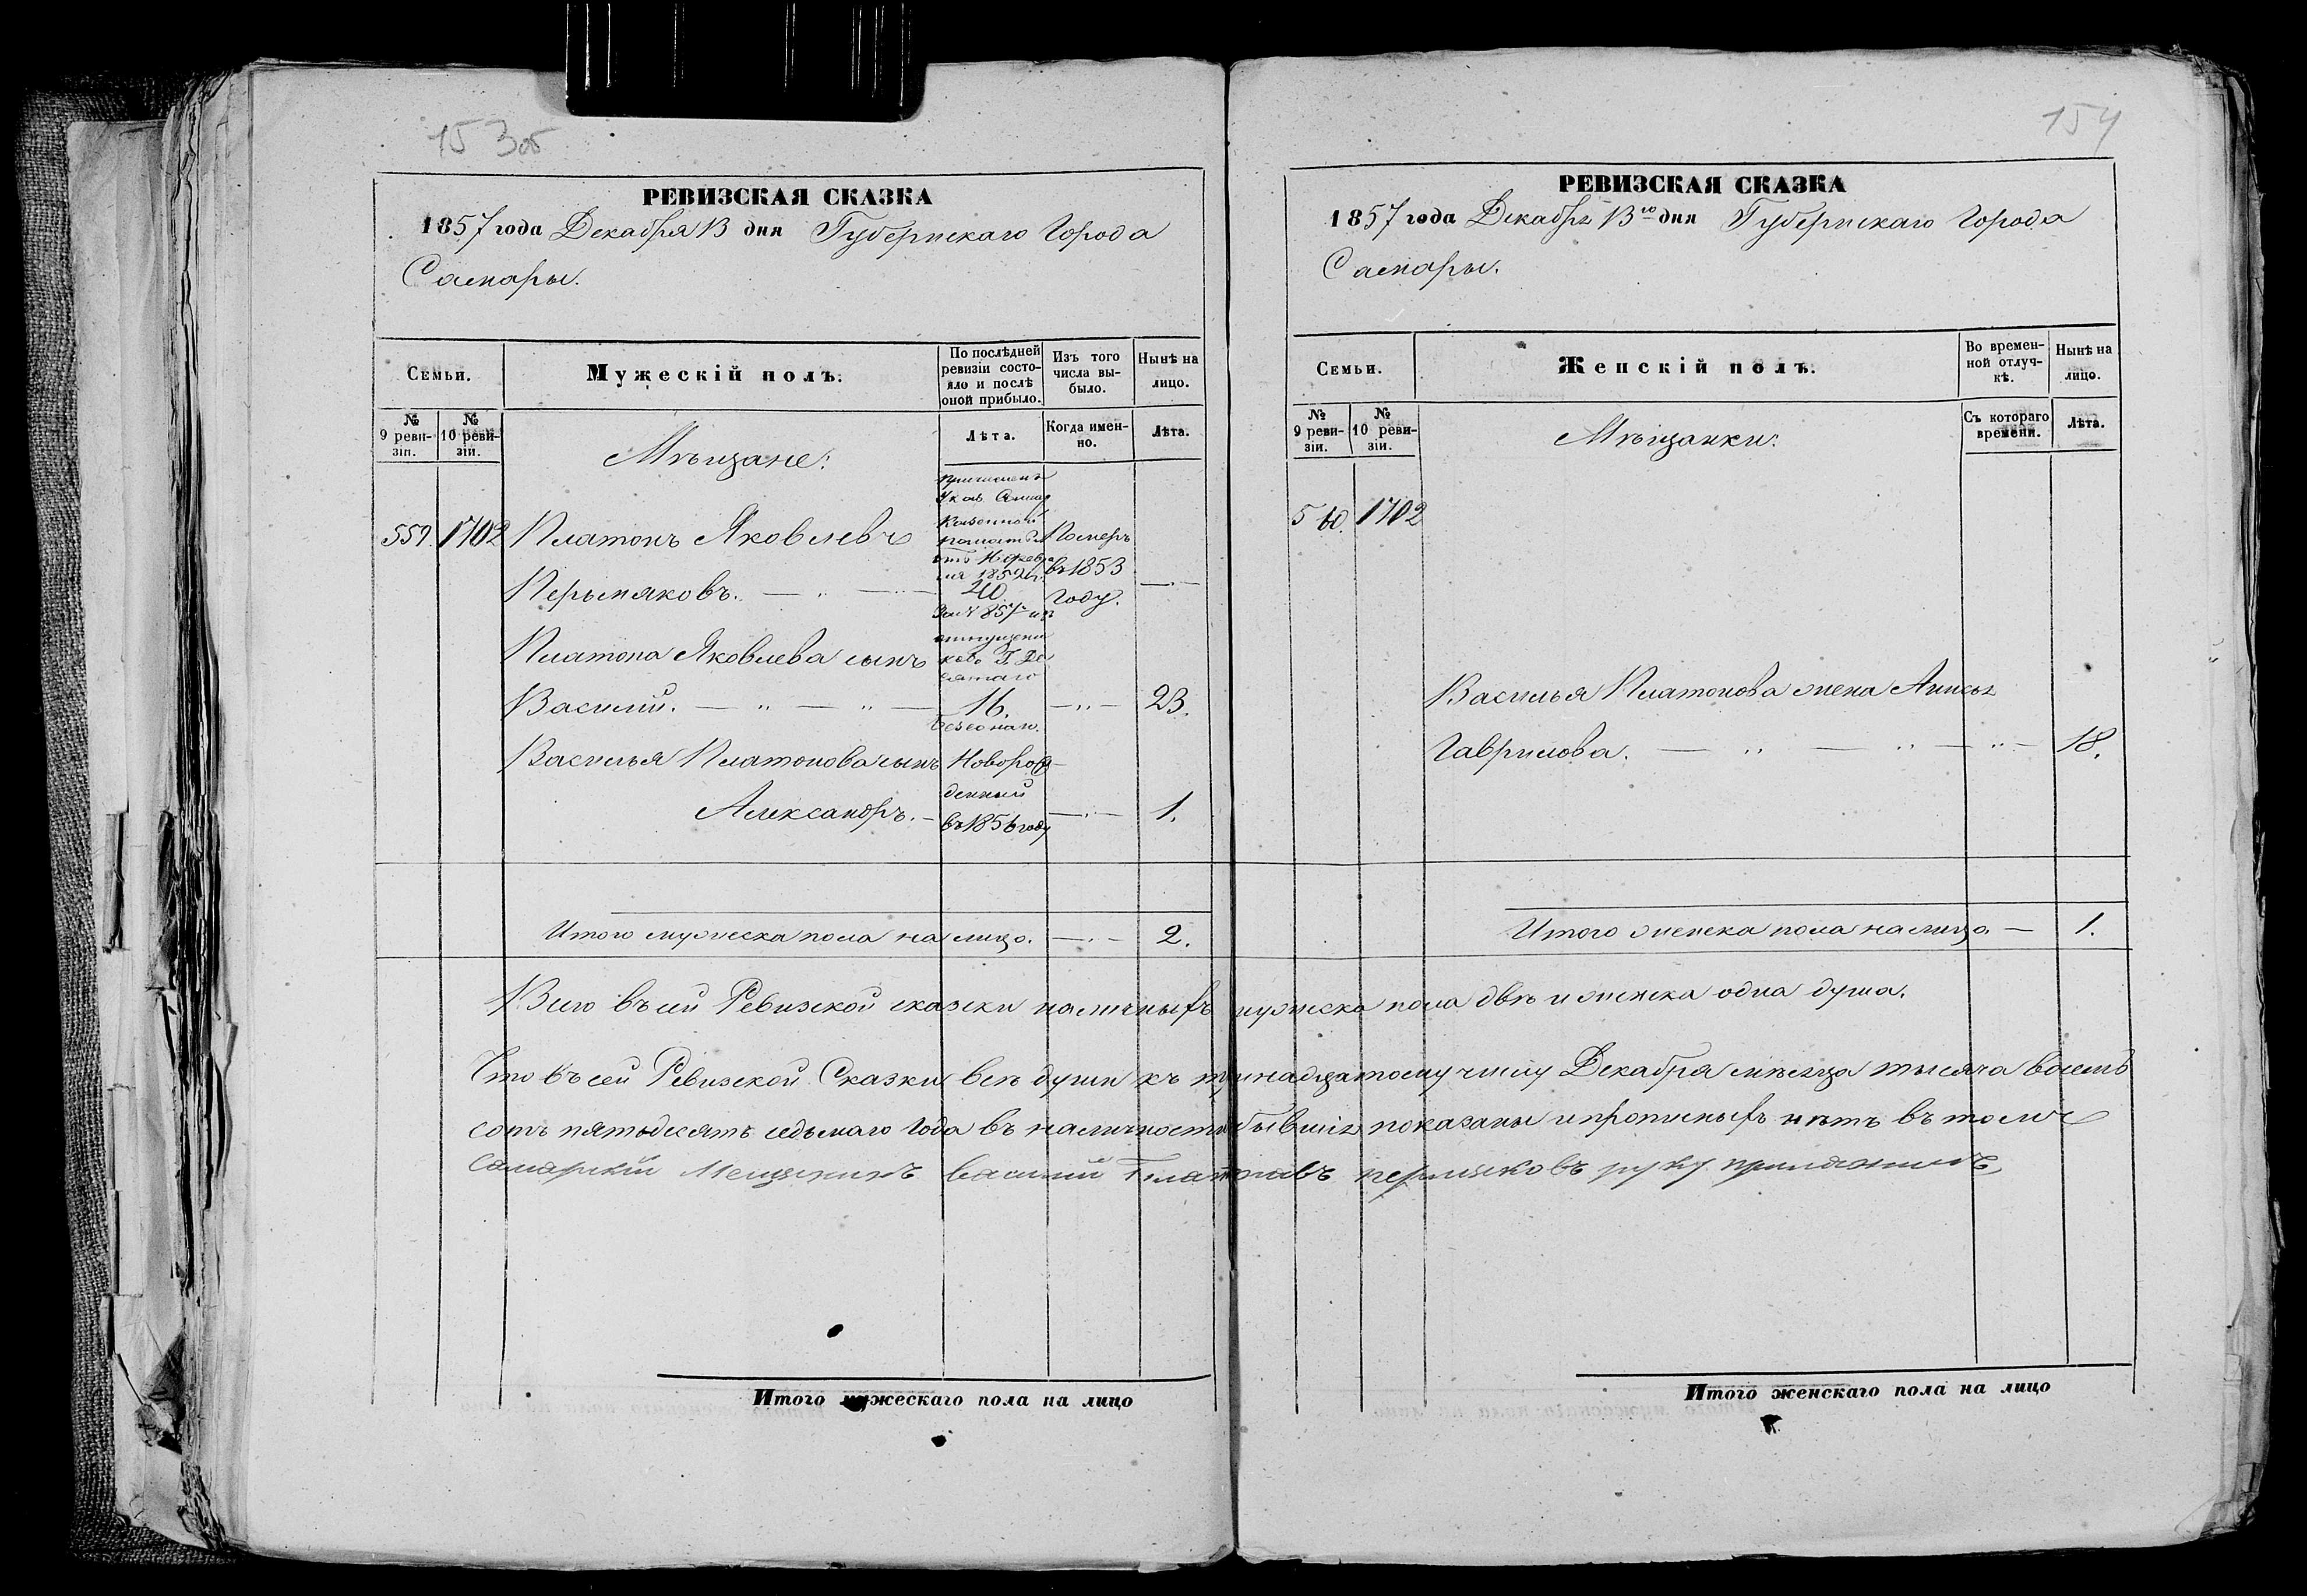 153об
РЕВИЗСКАЯ СКАЗКА
1857 года Декабря 13 дня Губернскаго Города
Самары.
Семьи.
Мужескій полъ.
По послѣдней ревизіи состояло и послѣ оной прибыло.
Изъ того числа выбыло.
Нынѣ на лицо.
№ 9 ревизіи.
№ 10 ревизіи.
Лѣта.
Когда именно.
Лѣта.
Мѣщане:
559. 1702
Платонъ Яковлевъ
Пермяковъ.
Казенной
1852
40
Померъ
въ 1853
году.
Платона Яковлева сынъ
Василий. 16. 23.
Василья Платонова сынъ
Александръ.
Новорож
денный
въ 1856 году
1.
Итого мужеска пола на лицо. 2.
154
РЕВИЗСКАЯ СКАЗКА
1857 года Декабря 13го дня Губернскаго Города
Самары.
Семьи.
Женскій полъ.
Во временной отлучкѣ.
Нынѣ на лицо.
№ 9 ревизіи.
№ 10 ревизіи.
Съ котораго времени.
Лѣта.
Мѣщанки:
1702
Василья Платонова жена
Гаврилова. 18.
Итого женска пола на лицо. 1.
Всего въ сей Ревизской сказки наличныхъ мужеска пола двѣ и женска одна душа.
Что въ сей Ревизской Сказки всѣ души къ тринадцатому числу Декабря мѣсяца тысяча восемь
сотъ пятьдесятъ седьмаго Года въ наличности бывшія показаны и прописныхъ нѣтъ въ томъ
Самарский Мещанинъ василий Платоновъ пермяковъ руку приложилъ
Итого мужескаго пола на лицо
Итого женскаго пола на лицо